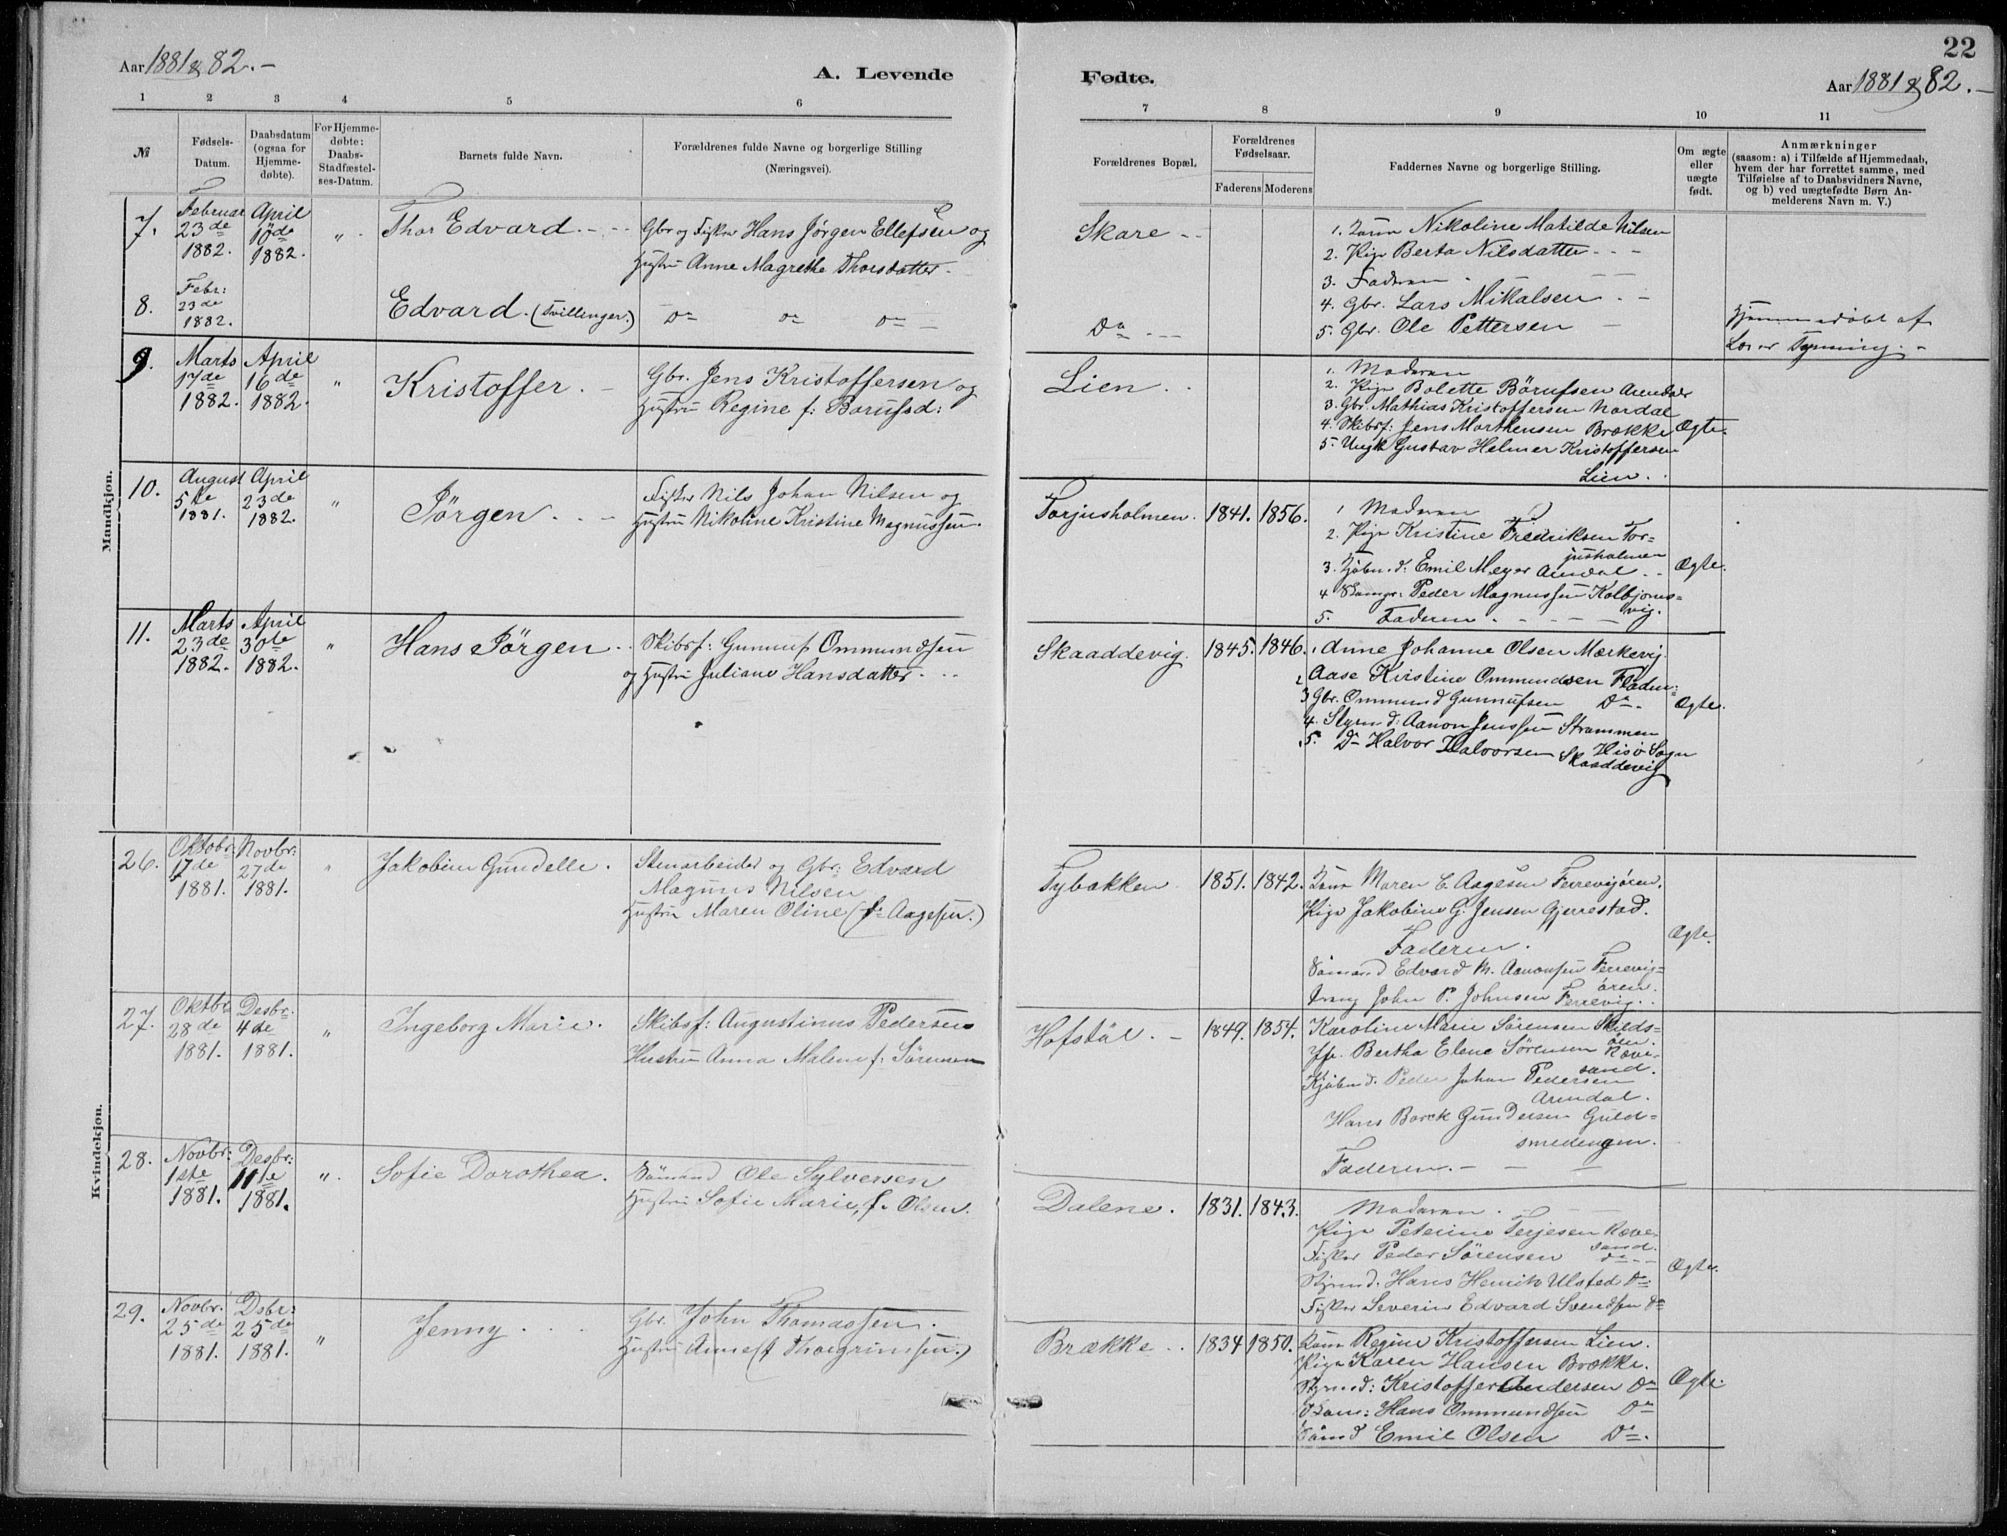 22
Aar 1881 & 82. -
A. Levende
Fødte.
Aar 1881 & 82. -
1 2 3 4 5 6 7 8 9 10 11
№
Fødsels-
Datum.
Daabsdatum
(ogsaa for
Hjemme-
døbte).
For Hjemme-
døbte:
Daabs-
Stadfæstel-
ses-Datum.
Barnets fulde Navn.
Forældrenes fulde Navne og borgerlige Stilling
(Næringsvei).
Forældrenes Bopæl.
Forældrenes
Fødselsaar.
Faderens
Moderens
Faddernes Navne og borgerlige Stilling.
Om ægte
eller
uægte
født.
Anmærkninger
(saasom: a) i Tilfælde af Hjemmedaab,
hvem der har forrettet samme, med
Tilføielse af to Daabsvidners Navne,
og b) ved uægtefødte Børn An-
melderens Navn m. V.)
Mandkjøn.
7.
Februar
23de
1882.
April
10de
1882.
"
Thor Edvard
Gbr og Fisker Hans Jörgen Ellefsen og
Hustru Anne Magrethe Thorsdatter
Skare
1. Kona Nikoline Matilde Nilsen
2. Pige Berta Nilsdatter
3. Faderen
4. Gbr. Lars Mikalsen
5. Gbr. Ole Pettersen
8.
Febr:
23de
1882.
Edvard. (Tvillinger.)
Do Do Do
Do
Hjemmedöbt af
Lærer Tynning.
9.
Marts
17de
1882.
April
16de
1882.
"
Kristoffer.
Gbr. Jens Kristoffersen og
Hustru Regine f: Borufsd:
Lien
1. Moderen
2. Pige Bolette Börufsen Arendal
3. Gbr. Mathias Kristoffersen Nordal
4. Skibsf: Jens Marthensen Brække
5. Ungk Gustav Helmer Kristoffersen
Lien.
Ægte.
10.
August
5te
1881.
April
23de
1882.
"
Jörgen
Fisker Nils Johan Nilsen og
Hustru Nikoline Kristine Magnussen.
Torjusholmen. 1841. 1856.
1 Moderen
2. Pige Kristine Fredriksen Tor=
jusholmen
3. Kjöbmd: Emil Meyer Arendal
4 Peder Magnussen Kolbjorns=
vig.
5. Faderen
Ægte.
11.
Marts
23de
1882.
April
30te
1882.
"
Hans Jörgen
Skibsf: Gunnuf Ommundsen
og Hustru Juliane Hansdatter
Skaaddevig. 1845. 1846.
1 Anne Johanne Olsen Mærkevig.
2 Aase Kristine Ommundsen Fladen:
3 Gbr. Ommund Gunnufsen Do
4. Styrmd: Aanon Jenssen Strømmen
Hisö Sogn
5. Do Halvor Halvorsen Skaaddevig
Ægte.
Kvindekjøn.
26.
Oktobr.
17de
1881.
Novbr:
27de
1881.
"
Jakobine Gundelle.
Stenarbeider og Gbr: Edvard
Magnus Nilsen
Hustru Maren Oline (f: Aagesen.)
Tybakken 1851. 1842.
Kona Maren C. Aagesen Ferrevigören.
Pige Jakobine G. Jensen Gjerrestad.
Faderen.
Sömand Edvard M. Aanonsen Ferrevig=
ören.
John P. Johnsen Ferrevig.
Ægte.
27.
Oktbr
28de
1881.
Desbr.
4de
1881.
"
Ingeborg Marie.
Skibsf: Augustinus Pedersen
Hustru Anna Malene f: Sörensen
Hofstöl. 1849. 1854.
Karoline Marie Sörensen Skilds=
öen.
Jfr. Bertha Elene Sörensen Ræve=
sand.
Kjöbmd. Peder Johan Pedersen
Arendal.
Hans Borck Gundersen Guld=
smedengen.
Faderen.
28.
Novbr:
1ste
1881.
Desbr:
11te
1881.
"
Sofie Dorothea.
Sömand Ole Sylversen
Hustru Sofie Marie, f. Olsen.
Dalene. 1831. 1843.
Moderen.
Pige Peterine Terjesen Ræve=
sand.
Fisker Peder Sörensen Do
Styrmd. Hans Henrik Ulsted Do
Fisker Severin Edvard Svendsen Do
Ægte.
29.
Novbr.
25de
1881.
Dsbr:
25de
1881.
"
Jenny
Gbr. John Thomassen.
Hustru Anne (f Thorgrimsen.)
Brække 1834 1850.
Kona Regine Kristoffersen Lien.
Pige Karen Hansen Brække.
Styrmd: Kristoffer Andersen Do
Hans Ommundsen Do
Sömd Emil Olsen Do
Ægte.